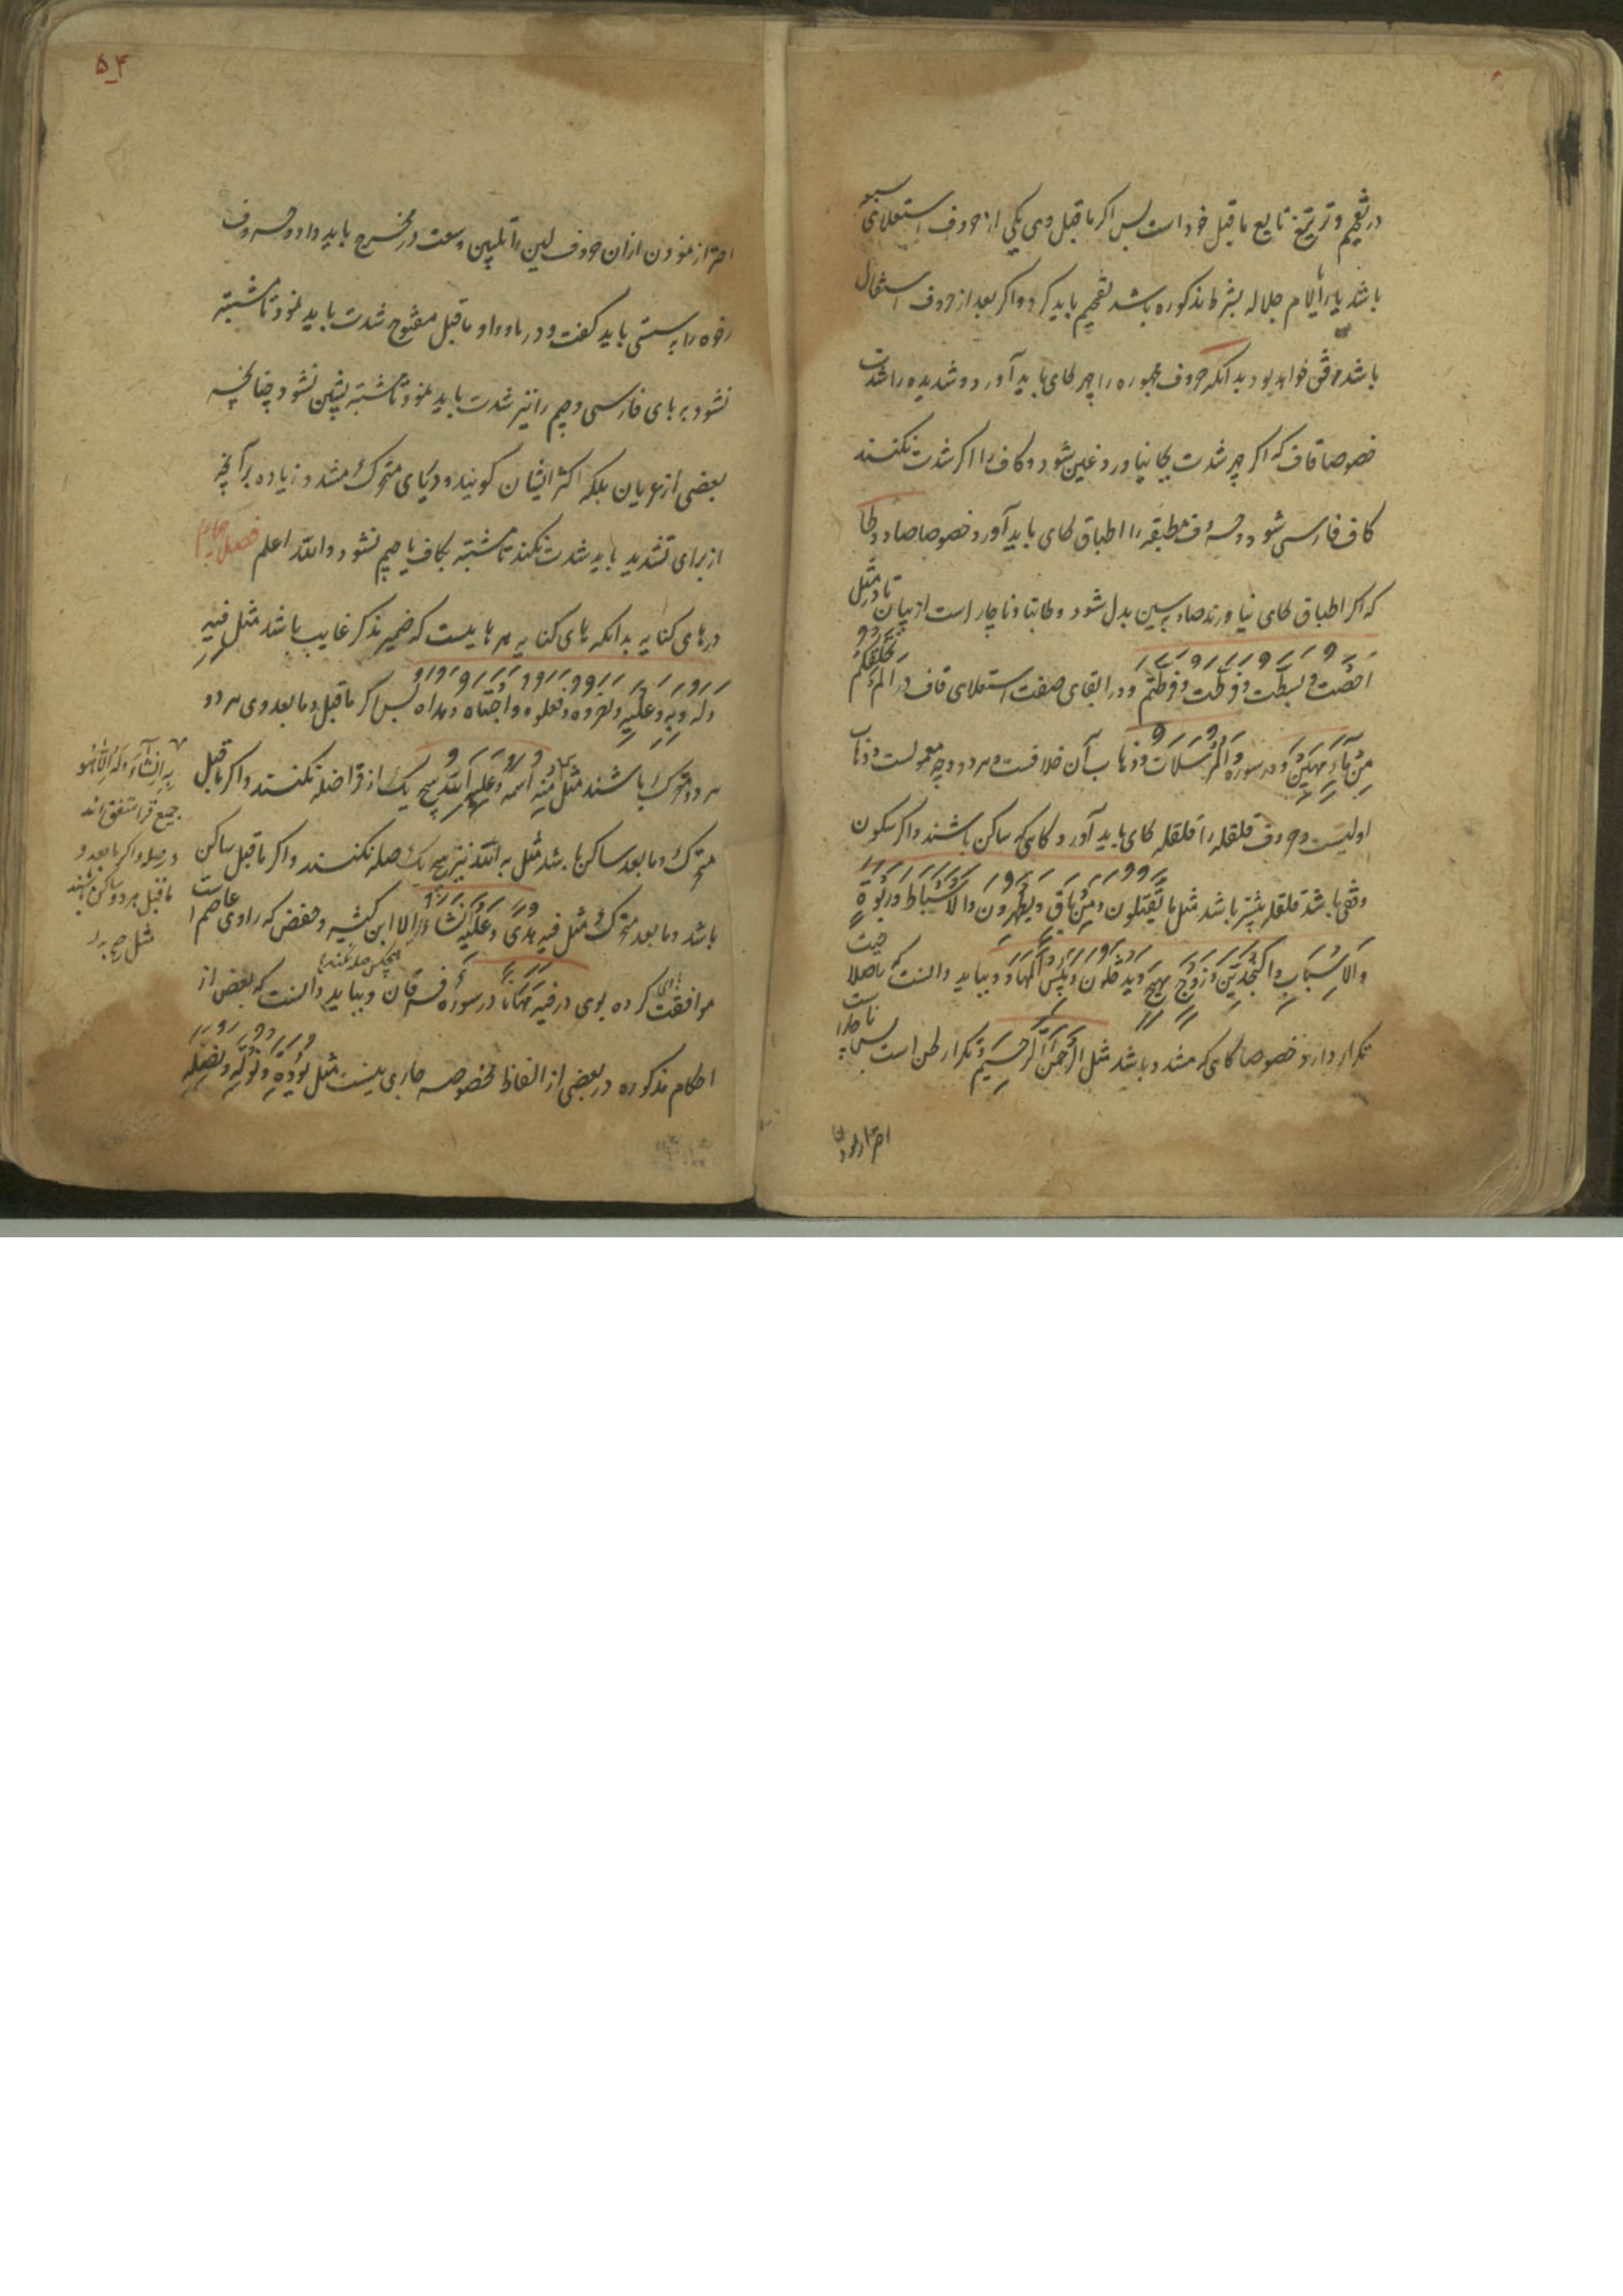 در تفخیم و ترقیق تابع ماقبل خود است پس اگر ماقبل وی یکی از حروف استعلای سبعه
باشد یا را یا لام جلاله بشرط مذکوره باشد تفخیم باید کرد و اگر بعد از حروف استفال
باشد مرقق خواهد بود بدانکه حروف مجهوره را جهر بجای باید آورد و شدیده را شدت
خصوصا قاف که اگر جهر شدت بجا نیاورد غین شود و کاف را اگر شدت نکنند
کاف فارسی شود و حروف مطبقه را اطباق بجای باید آورد خصوصا صاد و طا
که اگر اطباق بجای نیاورند صاد بسین بدل شود و طا بتا و ناچار است از بیان تا در مثل
احطت و بسطت و فرطت و فرطتم و در ابقای صفت استعلای قاف در الم نخلقکم
من ماء مهین در سوره والمرسلات و ذهاب آن خلافست و هر دو وجه معمولست و ذهاب
اولیست و حروف قلقله را قلقله بجای باید آورد گاهی که ساکن باشند و اگر سکون
وقفی باشد قلقله بیشتر باشد مثل یقتلون و من باق و یطهرون والاسباط و ربوة
والاسباب و النجدین و زوج بهیج و یدخلون و بئس المهاد و بباید دانست که را صلاحیت
تکرار دارد خصوصا گاهی که مشدد باشد مثل الرحمن الرحیم و تکرار لحن است پس ناچار است
احتراز نمودن
۵۴
احتراز نمودن از آن حروف لین را بلین وسعت در مخرج باید داد و حروف
رخوه را بسستی باید گفت و در یا و واو ماقبل مفتوح شدت باید نمود تا مشتبه
نشود بر بای فارسی و جیم را نیز شدت باید نمود تا مشتبه بشین نشود چنانچه
بعضی از عربان بلکه اکثر ایشان گویند و در یای متحرک مشدد زیاده بر آنچه
از برای تشدید باید شدت نکند تا مشتبه بکاف یا جیم نشود والله اعلم فصل چهارم
در های کنایه بدانکه های کنایه هر هاییست که ضمیر مذکر غایب باشد مثل فیه
و له و به و علیه و نصروه و فعلوه و اجتباه و هداه پس اگر ماقبل و مابعد وی هر دو
هر دو متحرک باشند مثل منه اسمه و علیه الله هیچ یک از قرا صله نکنند و اگر ماقبل
متحرک و مابعد ساکن باشد مثل به الله نیز هیچ یک صله نکنند و اگر ماقبل ساکن
باشد و مابعد متحرک مثل فیه هدی و علیه هیچکس صله نکند الا ابن کثیر و حفص که راوی عاصم است
موافقت کرده بوی در فیه مهانا در سوره فرقان و بباید دانست که بعضی از
احکام مذکوره در بعضی از الفاظ مخصوصه جاری نیست مثل یؤده و نؤته و نصله
جمیع قرا متفق اند
در صله و اگر مابعد و
ماقبل هر دو ساکن باشند